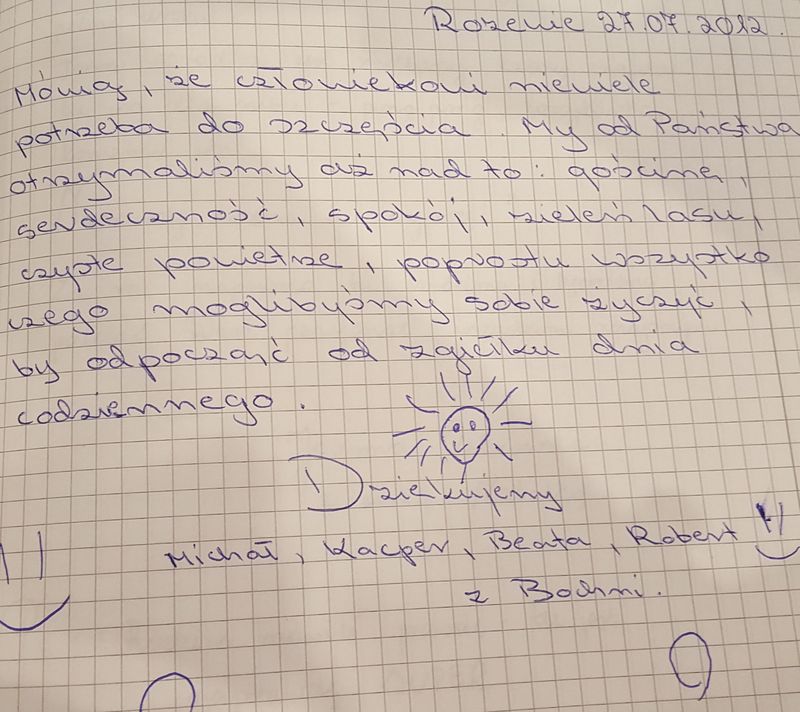 Rozenie 27.07.2012.
Mówią, że człowiekowi niewiele
potrzeba do szczęścia. My od Państwa
otrzymaliśmy aż nad to: gościnę,
serdeczność, spokój, zieleń lasu,
czyste powietrze, poprostu wszystko
czego moglibyśmy sobie życzyć,
by odpocząć od zgiełku dnia
codziennego.
Dziękujemy
Michał, Kacper, Beata, Robert
z Bochni.